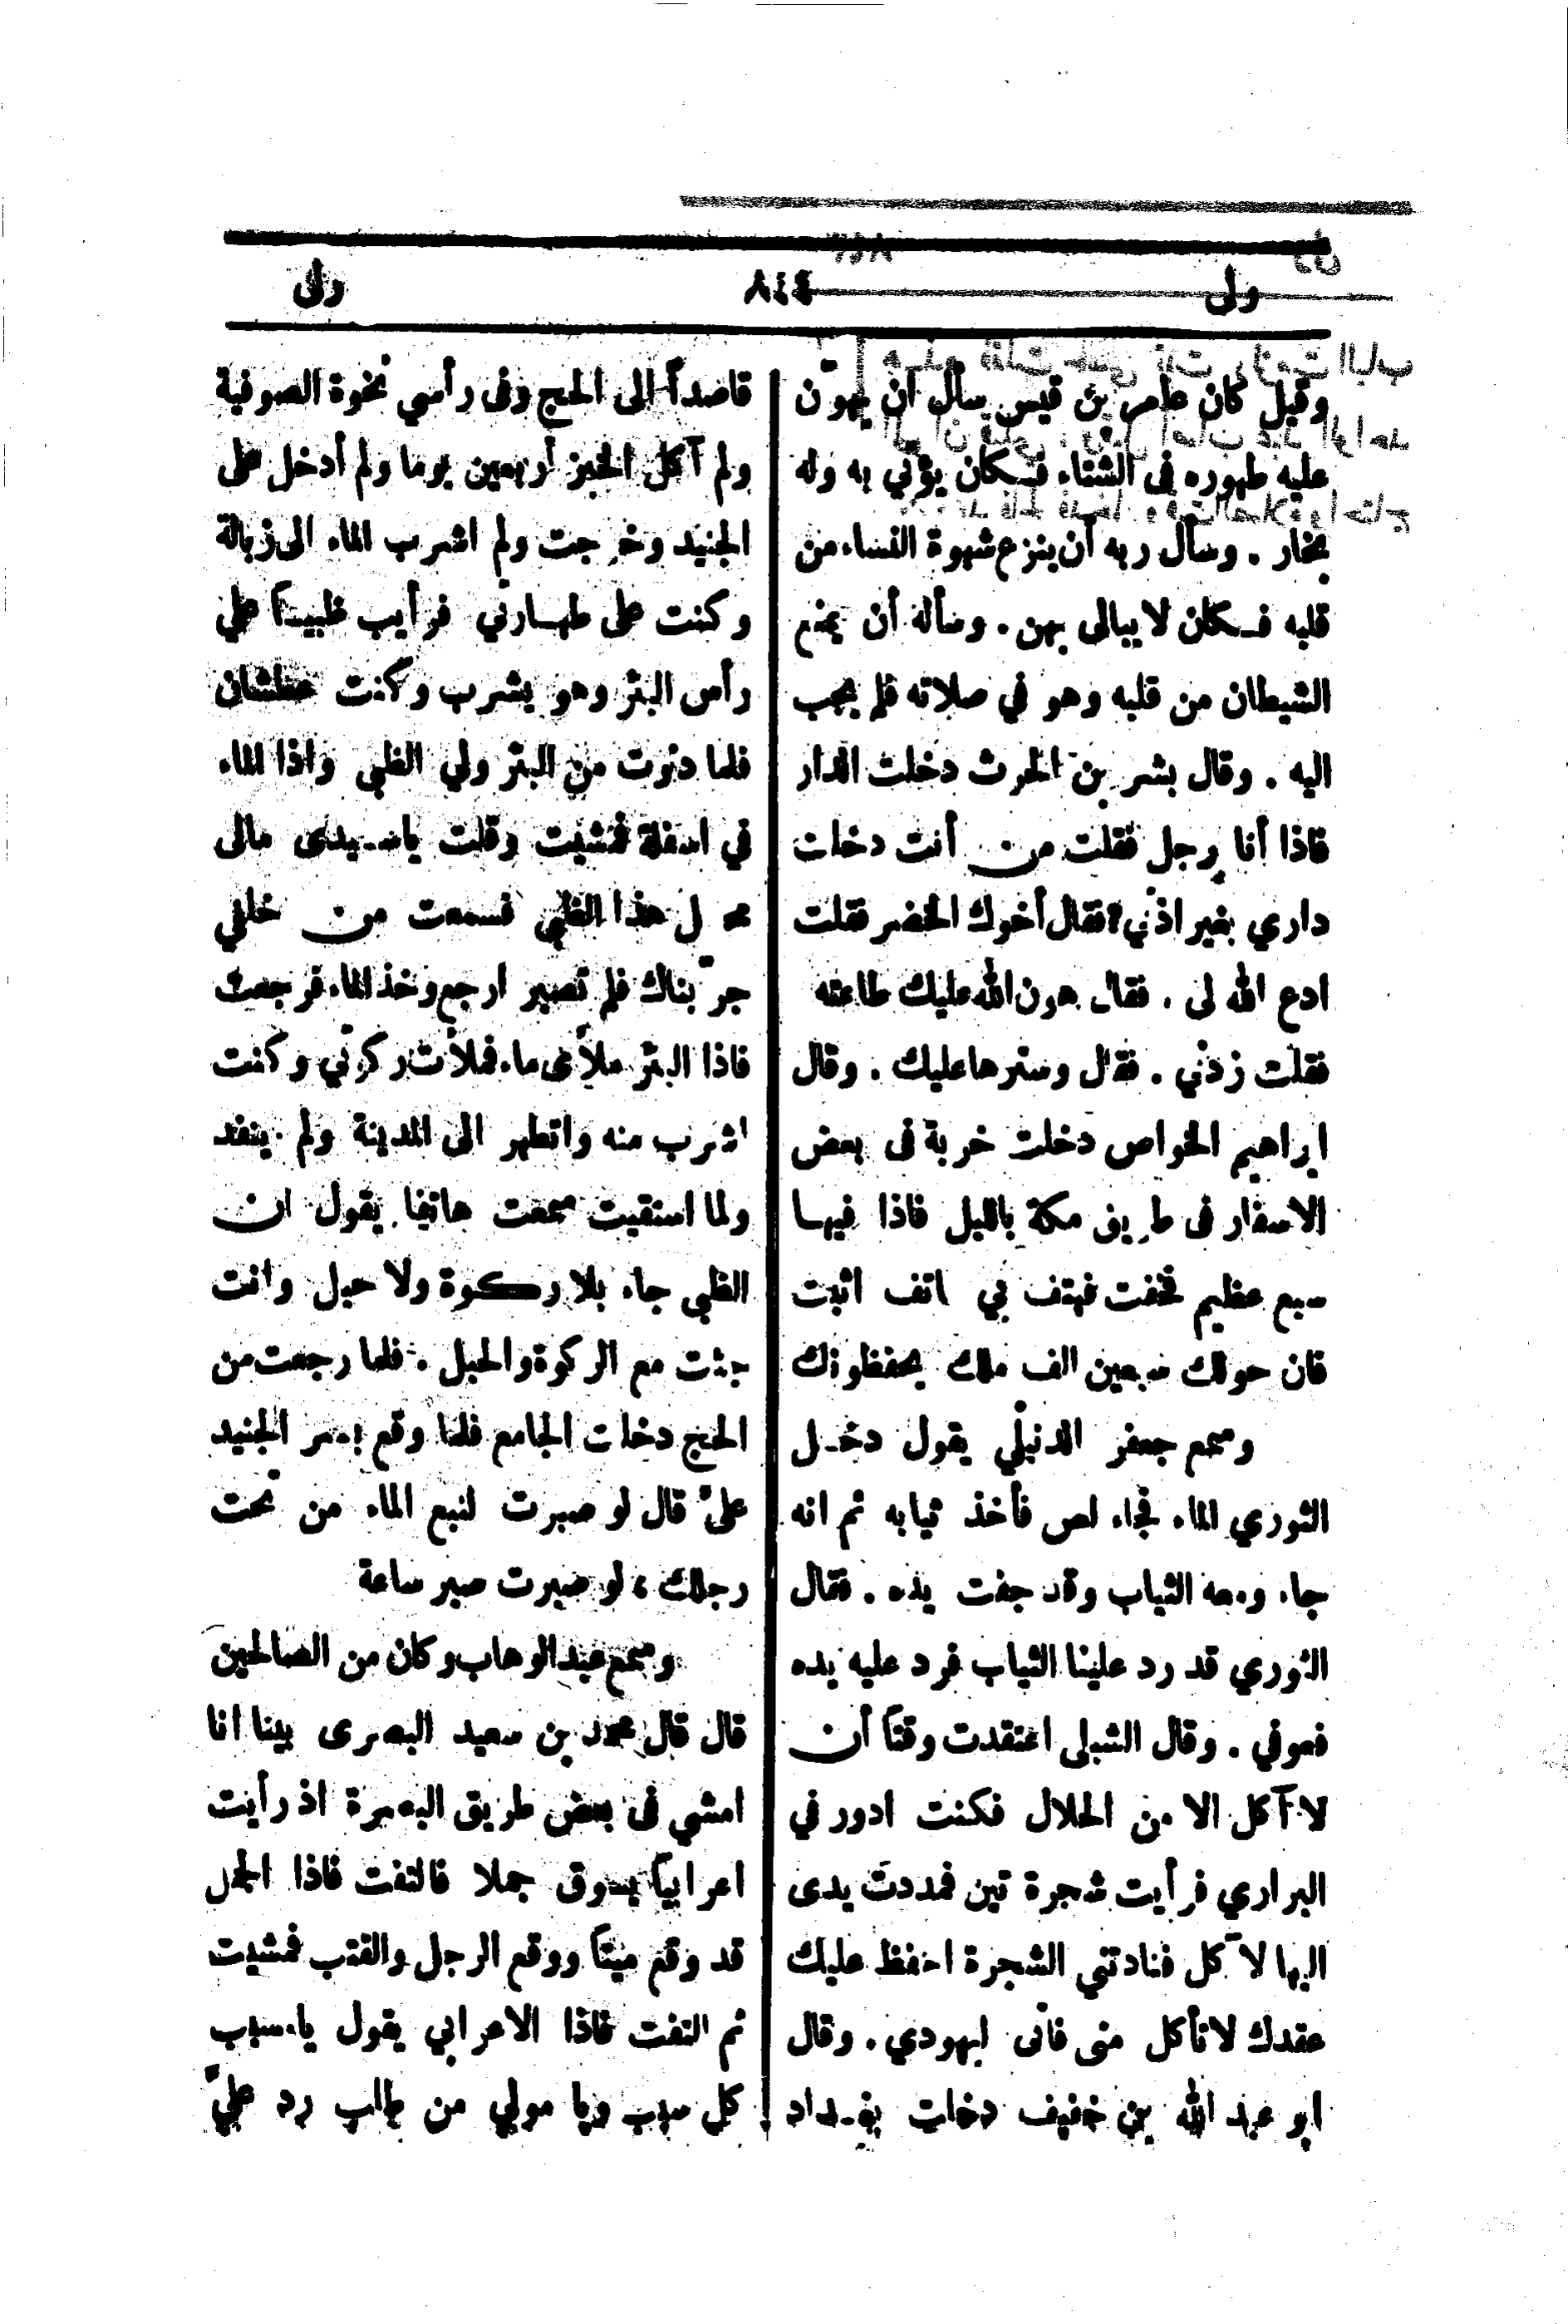 ولى ٨٤٤ ولى
وقيل كان عامر بن قيس سأل أن يهوّن
عليه طهوره فى الشتاء فكان يؤتي به وله
بخار . وسأل ربه أن ينزع شهوة النساء من
قلبه فكان لا يبالى بهن . وسأله أن يمنع
الشيطان من قلبه وهو في صلاته فلم يجب
اليه . وقال بشر بن الحرث دخلت الدار
فاذا أنا برجل فقلت من أنت دخلت
داري بغير اذني ؟ فقال أخوك الخضر فقلت
ادع الله لى . فقال هون الله عليك طاعته
فقلت زدني . فقال وسترها عليك . وقال
ابراهيم الخواص دخلت خربة فى بعض
الاسفار فى طريق مكة بالليل فاذا فيها
سبع عظيم فخفت فهتف بي هاتف اثبت
فان حولك سبعين الف ملك يحفظونك
وسمع جعفر الدنبلي يقول دخل
النوري الماء فجاء لص فأخذ ثيابه ثم انه
جاء ومعه الثياب وقد جفت يده . فقال
النوري قد رد علينا الثياب فرد عليه يده
فعوفي . وقال الشبلى اعتقدت وقتاً أن
لا آكل الا من الحلال فكنت ادور في
البراري فرأيت شجرة تين فمددت يدى
اليها لآكل فنادتني الشجرة احفظ عليك
عقدك لا تأكل منى فانى ليهودي . وقال
ابو عبد الله بن خفيف دخلت بغداد
قاصداً الى الحج وفى رأسي نخوة الصوفية
ولم آكل الخبز أربعين يوما ولم أدخل على
الجنيد وخرجت ولم اشرب الماء الى زبالة
وكنت على طهارتي فرأيب ظبيـاً علي
رأس البئر وهو يشرب وكنت عطشان
فلما دنوت من البئر ولي الظبى واذا الماء
في اسفله فمشيت وقلت ياسيدى مالى
محل هذا الظبي فسمعت من خلفي
جرّبناك فلم تصبر ارجع وخذ الماء فرجعت
فاذا البئر ملأى ماء فملأت ركوتي وكنت
اشرب منه واتطهر الى المدينة ولم ينفد
ولما استقيت سمعت هاتفا يقول ان
الظبى جاء بلا ركوة ولا حبل وانت
جئت مع الركوة والحبل . فلما رجعت من
الحج دخلت الجامع فلما وقع بصر الجنيد
علىّ قال لو صبرت لنبع الماء من تحت
رجلك ، لو صبرت صبر ساعة
وسمع عبد الوهاب وكان من الصالحين
قال قال محمد بن سعيد البصرى بينا انا
امشي فى بعض طريق البصرة اذ رأيت
اعرابياً يسوق جملا فالتفت فاذا الجمل
قد وقع ميتاً ووقع الرجل والقتب فمشيت
ثم التفت فاذا الاعرابي يقول يامسبب
كل سبب ويا مولي من طلب رد عليّ